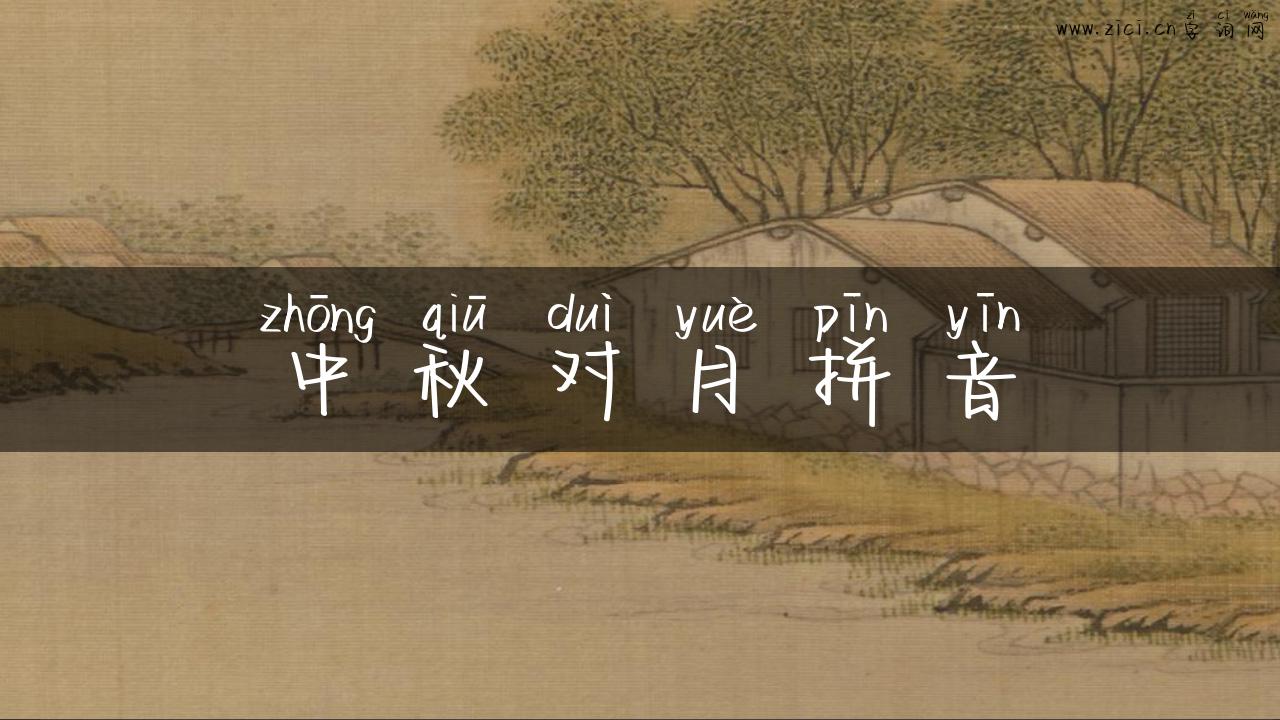 zì cí wǎng
www.zici.cn字词网
zhōng qiū duì yuè pīn yīn
中秋对月拼音